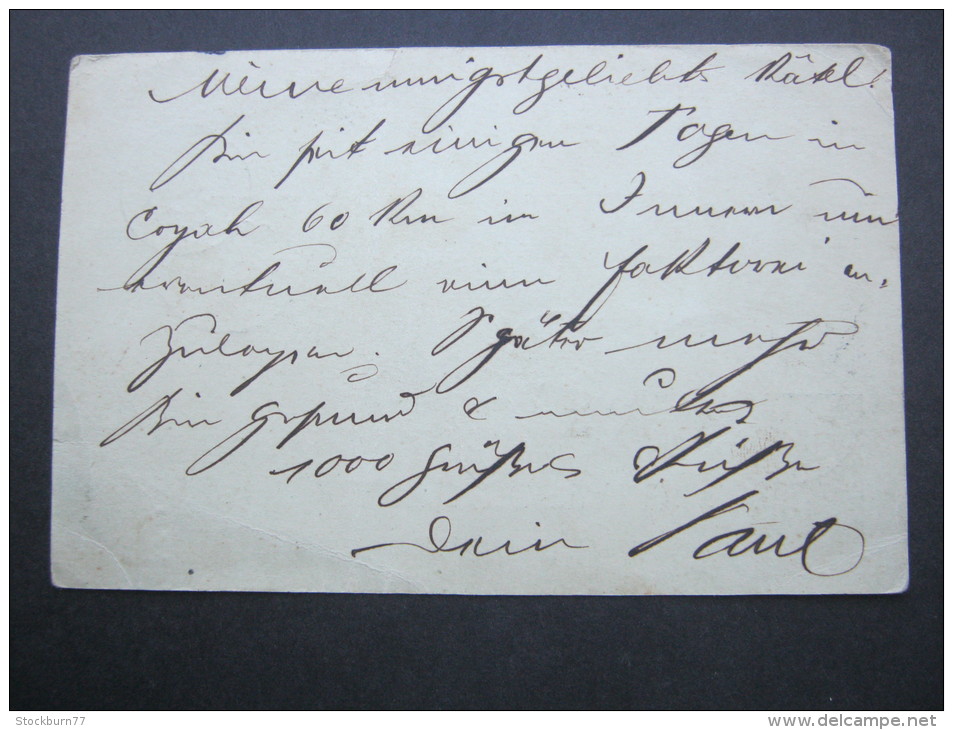 Meine innigstgeliebte Kätel!
Bin seit einigen Tagen in
Coyah 60 Km im Innern um
eventuell eine Faktorei an-
zulegen. Später mehr
Bin gesund & munter
1000 Grüße & Küße
Dein Paul
Stockburn77
www.delcampe.net